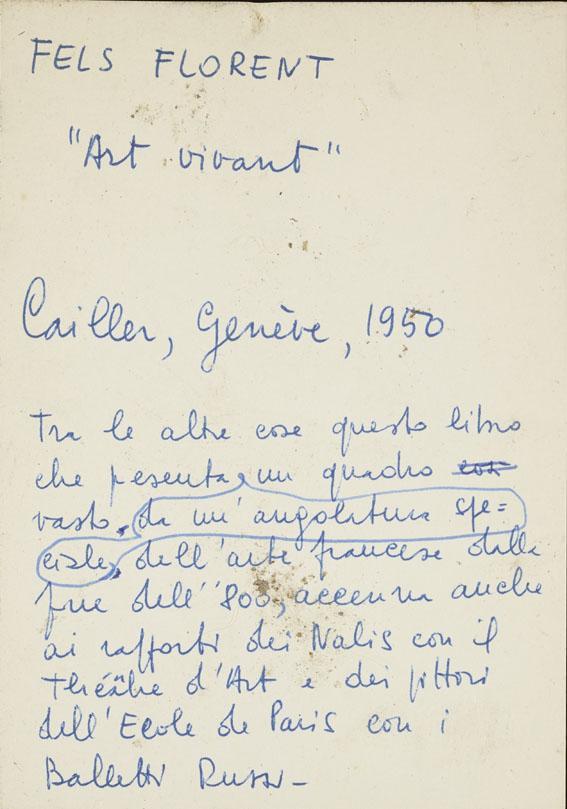 FELS FLORENT
"Art vivant"
Cailler, Genève, 1950
Tra le altre cose questo libro
che presenta, un quadro
vasto, da un'angolatura spe=
ciale, dell'arte francese dalla
fine dell''800, accenna anche
ai rapporti dei Nabis con il
Théâtre d'Art e dei pittori
dell'Ecole de Paris con i
Balletti Russi-